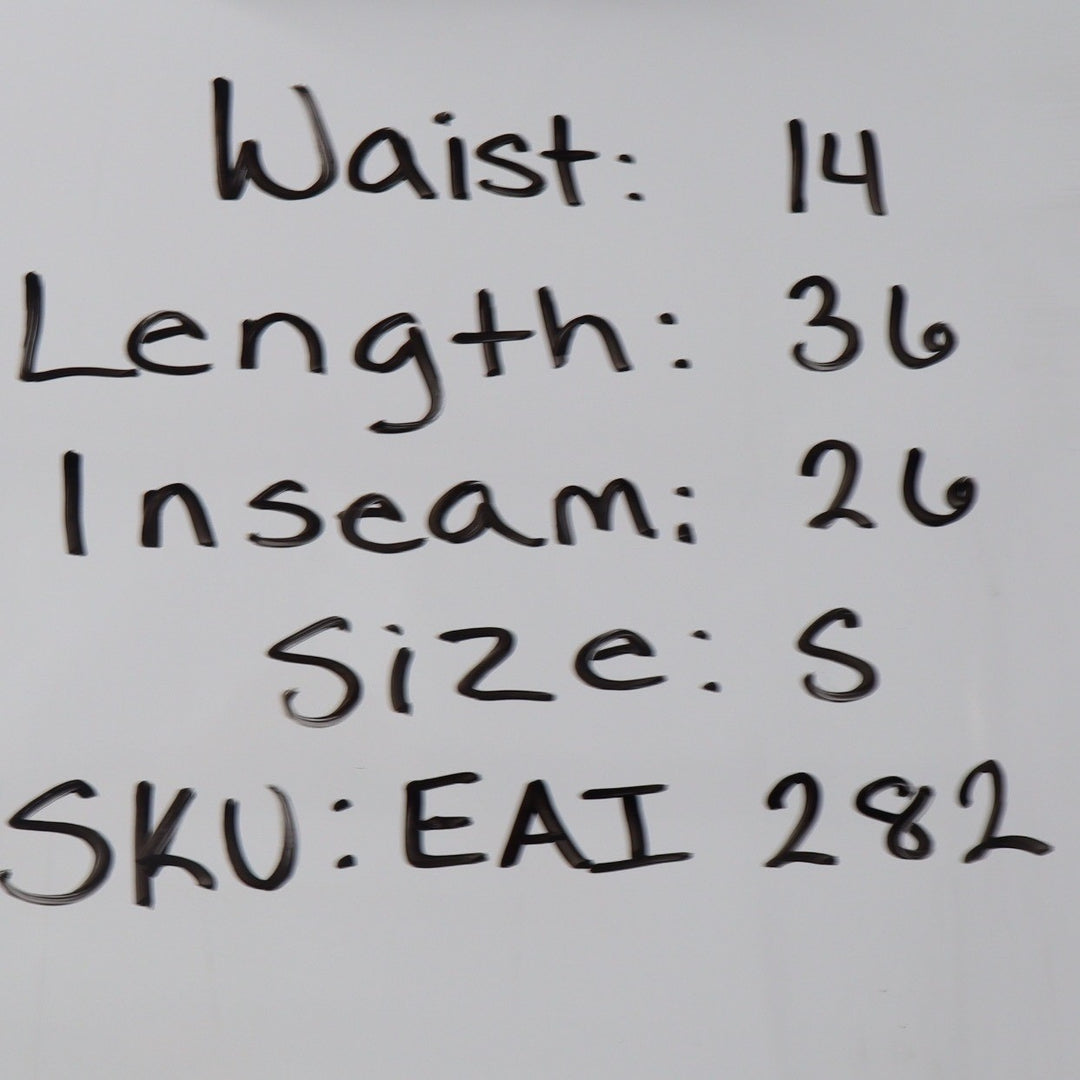 Waist: 14
Length: 36
Inseam: 26
Size: S
SKU: EAI 282